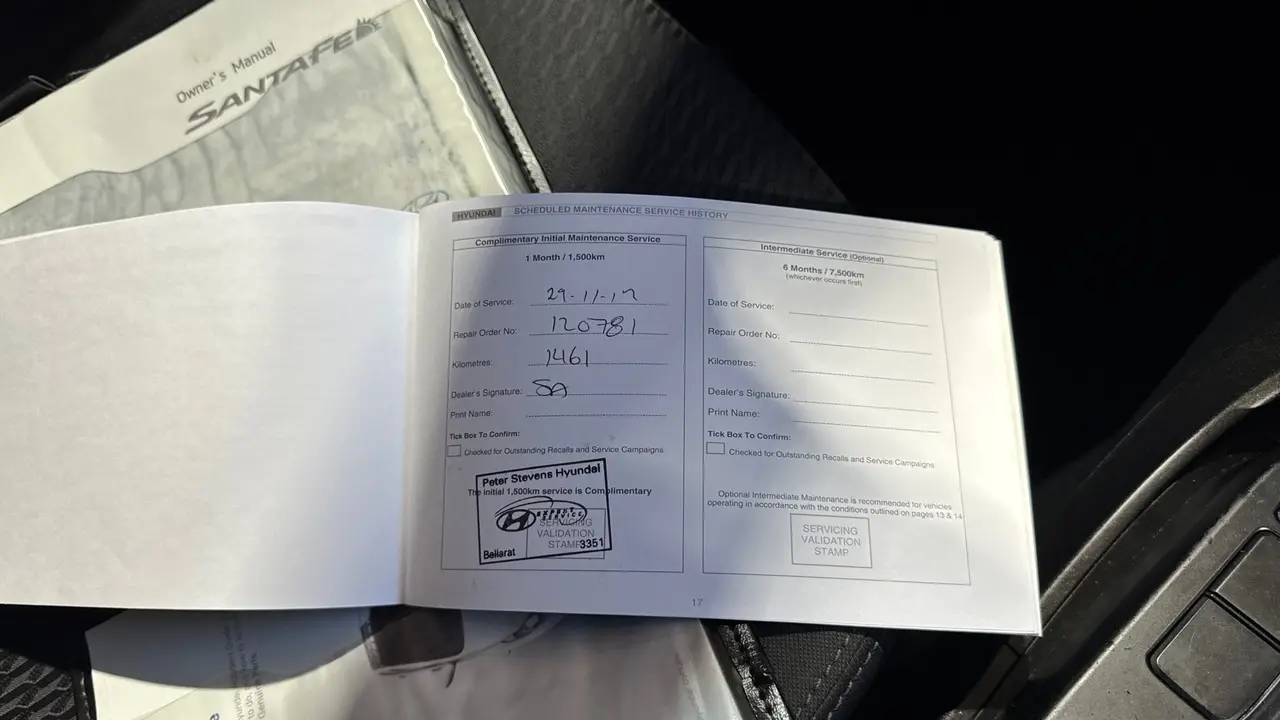 Owner's Manual
SANTAFE
HYUNDAI SCHEDULED MAINTENANCE SERVICE HISTORY
Complimentary Initial Maintenance Service
1 Month / 1,500km
Date of Service: 29-11-17
Repair Order No: 120781
Kilometres: 1461
Dealer's Signature: SA
Print Name:
Tick Box To Confirm:
Checked for Outstanding Recalls and Service Campaigns
Peter Stevens Hyundai
The initial 1,500km service is Complimentary
SERVICING
VALIDATION
STAMP
Ballarat 3351
Intermediate Service (Optional)
6 Months / 7,500km
(whichever occurs first)
Date of Service:
Repair Order No:
Kilometres:
Dealer's Signature:
Print Name:
Tick Box To Confirm:
Checked for Outstanding Recalls and Service Campaigns
Optional Intermediate Maintenance is recommended for vehicles
operating in accordance with the conditions outlined on pages 13 & 14
SERVICING
VALIDATION
STAMP
17